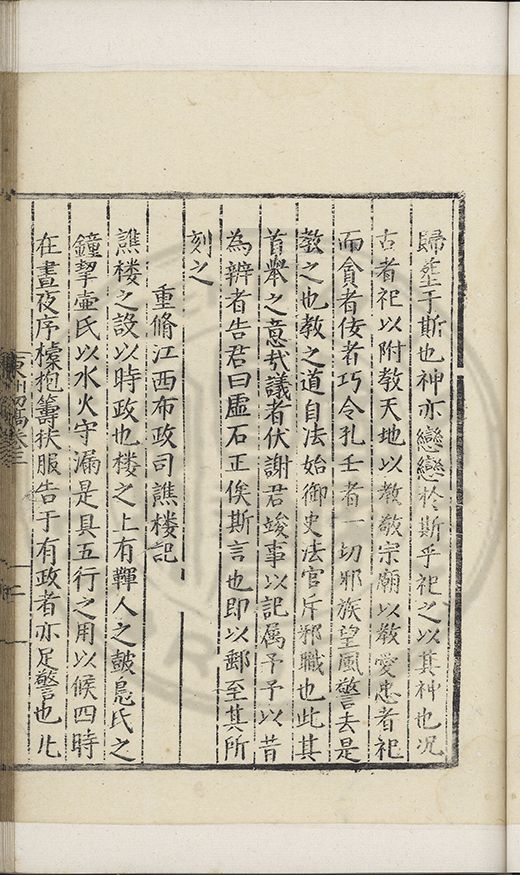 歸葬于斯也神亦戀戀於斯乎祀之以其神也况
古者祀以附教天地以教敬宗廟以教愛忠者祀
而貪者佞者巧令孔壬者一切邪族望風警去是
教之也教之道自法始御史法官斥邪職也此其
首舉之意哉議者伏謝君竣事以記属予予以昔
為辨者告君曰虛石正俟斯言也即以郵至其所
刻之
重脩江西布政司譙楼記
譙楼之設以時政也楼之上有鞸人之皷鳬氏之
鐘挈壷氏以水火守漏是具五行之用以候四時
在晝夜序檬抱籌扶服告于有政者亦足警也此
東川初稿卷三